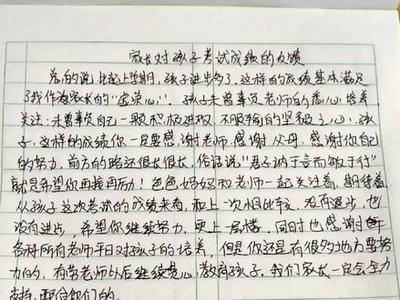 家长对孩子考试成绩的反馈
总的说，比起上学期，孩子进步多了，这样的成绩基本满足
了我作为家长的"虚荣心"。孩子未曾辜负老师的悉心培养
关注；未曾辜负自己一颗积极进取、不服输的坚毅之心；孩
子，这样的成绩你一定要感谢老师，感谢父母，感谢你自己
的努力，前方的路还很长很长，俗话说"君子讷于言而敏于行"
就是希望你再接再励！爸爸妈妈和老师一起关注着，期待着
从孩子这次考试的成绩来看，和上一次相比较，没有退步，也
没有进步，希望你继续努力，更上一层楼，同时也感谢
各科所有老师平日对孩子的培养，但是你还是有很多地方要努
力的，有劳老师以后继续费心教育孩子，我们家长一定会全力
支持，配合你们的。